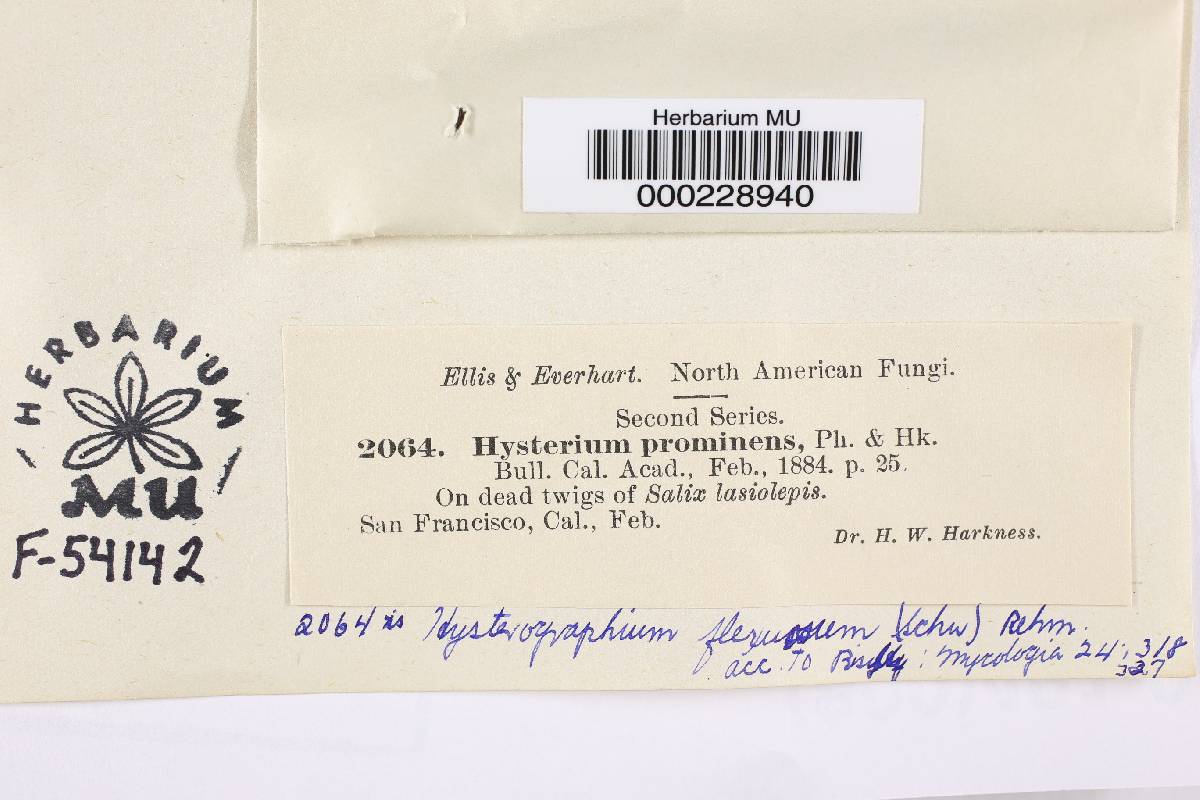 Herbarium MU
000228940
HERBARIUM
MU
F-54142
Ellis & Everhart. North American Fungi.
Second Series.
2064. Hysterium prominens, Ph. & Hk.
Bull. Cal. Acad., Feb., 1884. p. 25.
On dead twigs of Salix lasiolepis.
San Francisco, Cal., Feb.
Dr. H. W. Harkness.
2064 is Hysterographium flexuosum (Schw) Rehm.
acc. to : Mycologia 24: 318
327